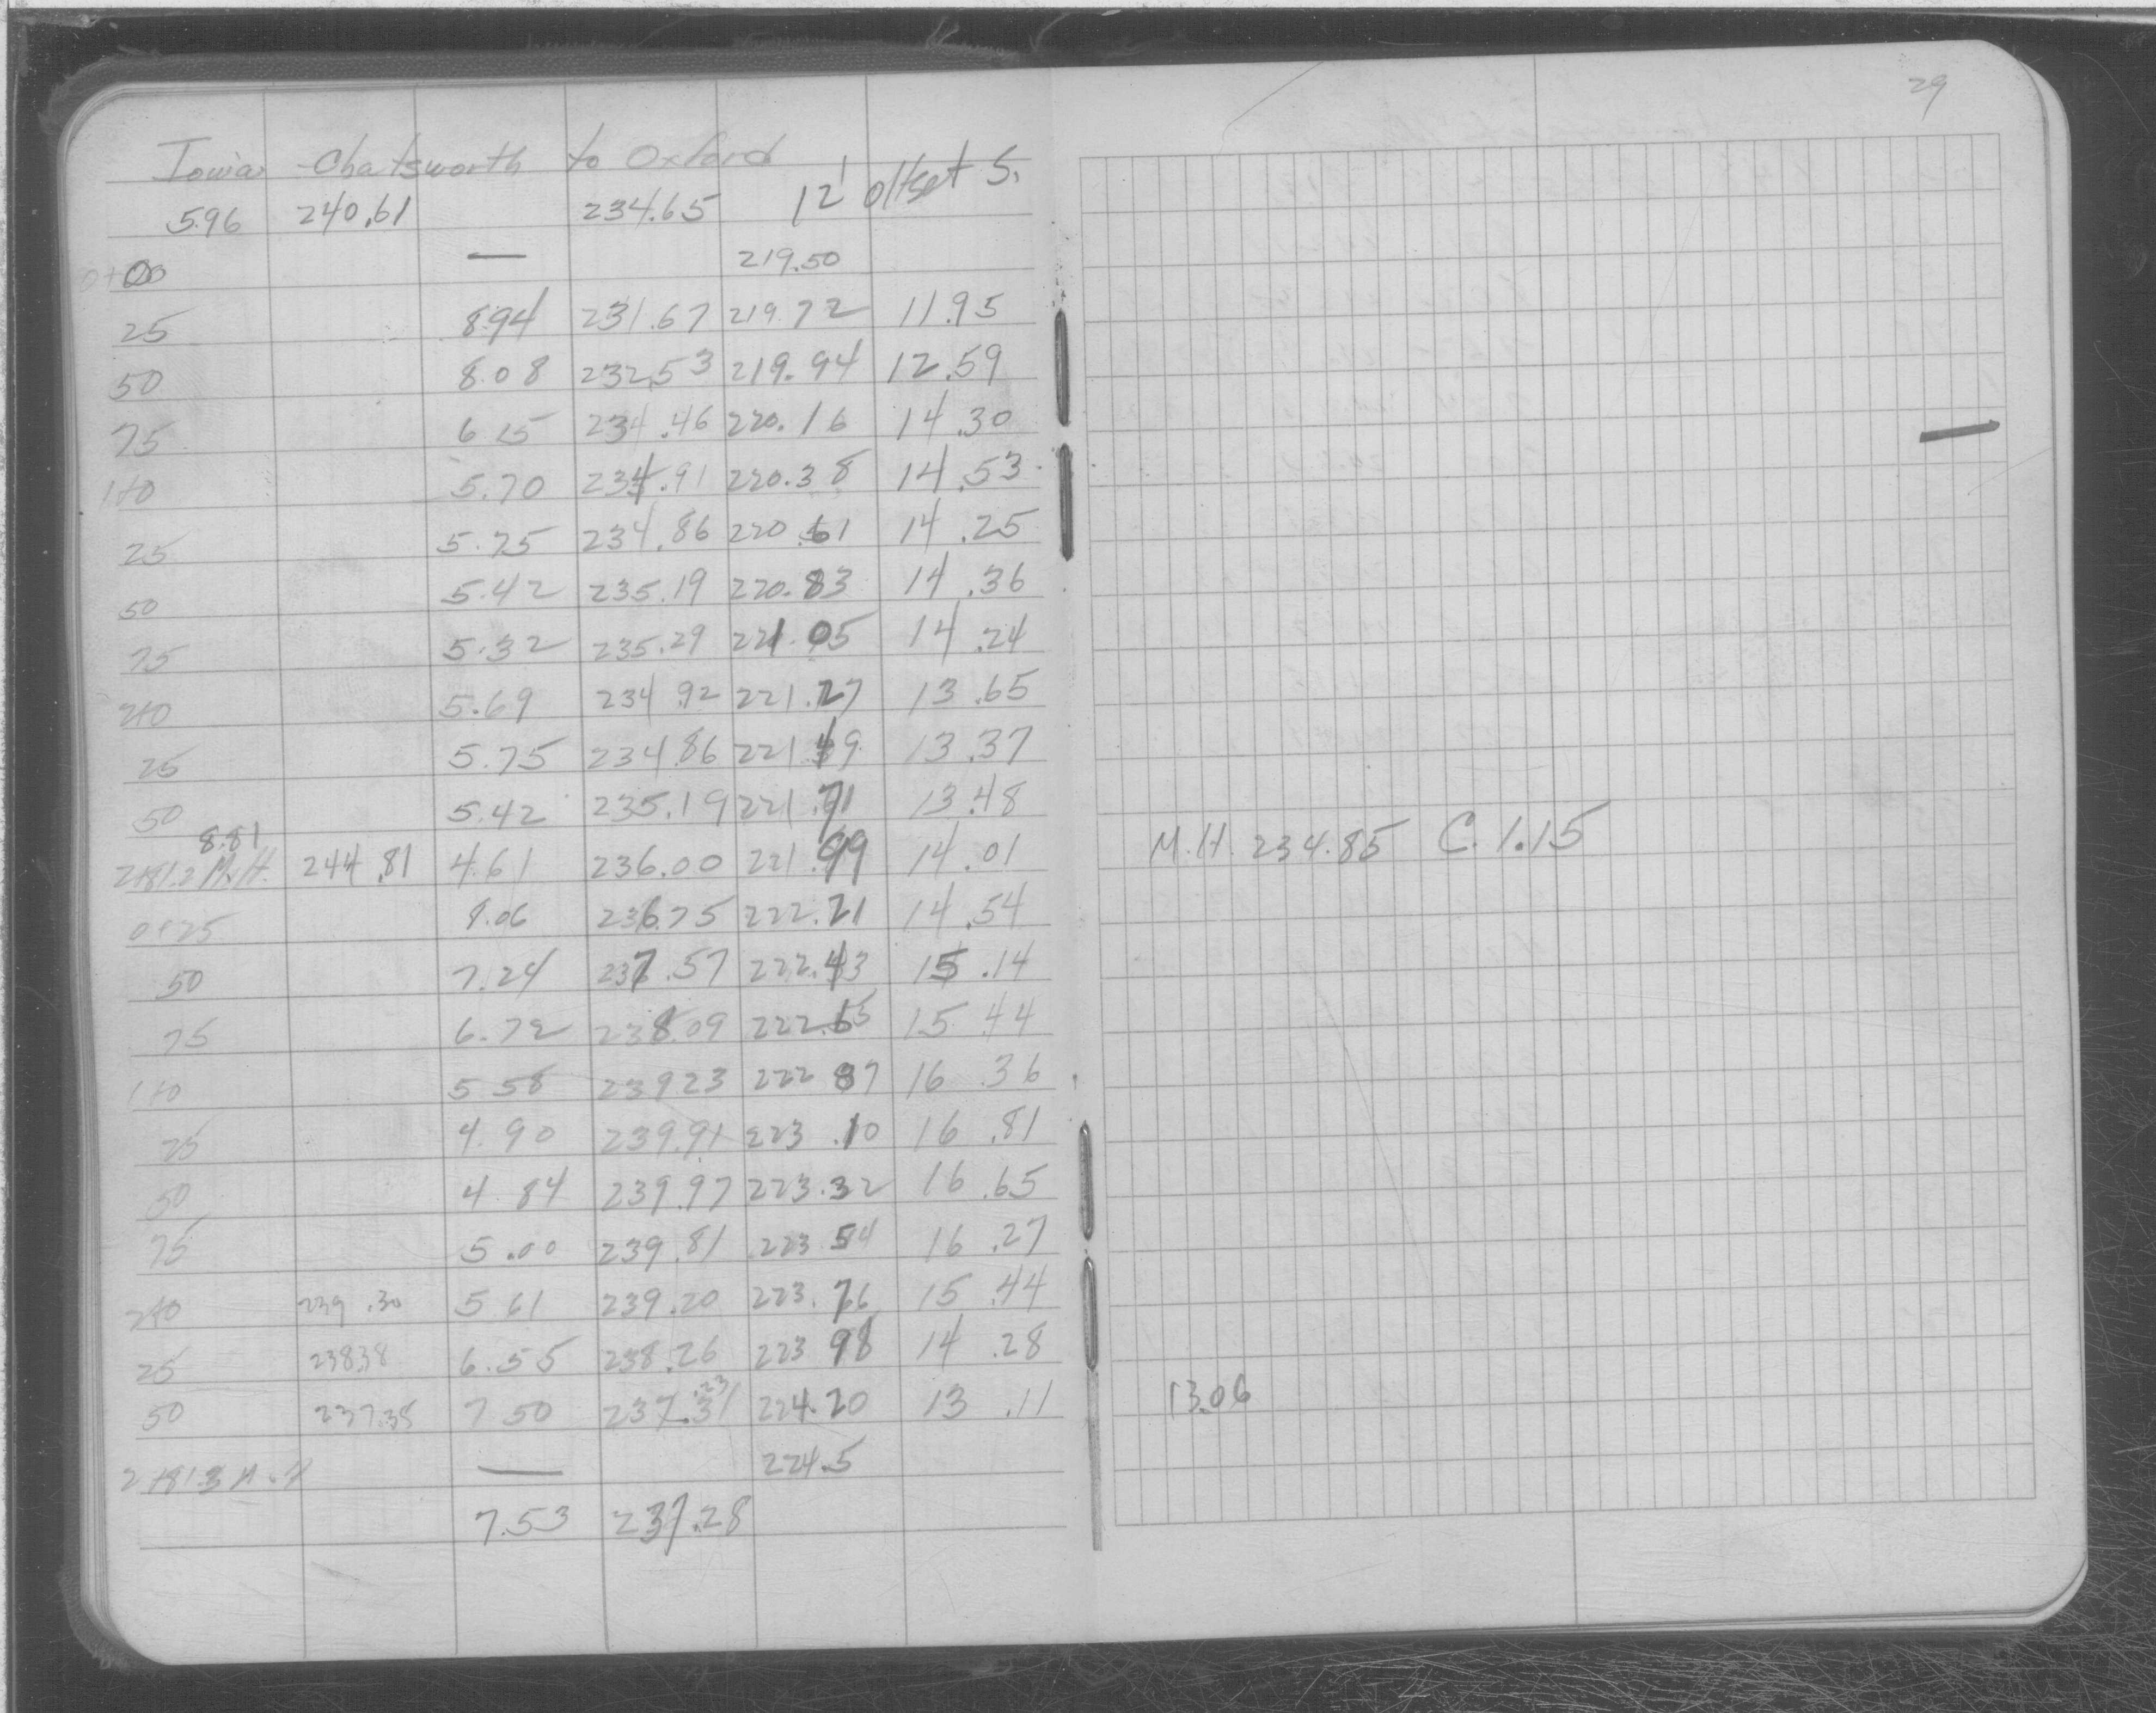 29
Iowa - Chatsworth to Oxford
12' offset S.
5.96 240.61 234.65
0+00 — 219.50
25 8.94 231.67 219.72 11.95
50 8.08 232.53 219.94 12.59
75 6.15 234.46 220.16 14.30
1+0 5.70 234.91 220.38 14.53
25 5.75 234.86 220.61 14.25
50 5.42 235.19 220.83 14.36
75 5.32 235.29 221.05 14.24
2+0 5.69 234.92 221.27 13.65
25 5.75 234.86 221.49 13.37
50 5.42 235.19 221.71 13.48
8.81
2+81.2 M.H. 244.81 4.61 236.00 221.99 14.01 M.H. 234.85 C. 1.15
0+25 8.06 236.75 222.21 14.54
50 7.24 237.57 222.43 15.14
75 6.72 238.09 222.65 15.44
1+0 5.58 239.23 222.87 16.36
25 4.90 239.91 223.10 16.81
50 4.84 239.97 223.32 16.65
75 5.00 239.81 223.54 16.27
2+0 239.30 5.61 239.20 223.76 15.44
25 238.38 6.55 238.26 223.98 14.28
.23
50 237.38 7.50 237.31 224.20 13.11 13.06
2+81.3 M.H — 224.5
7.53 237.28